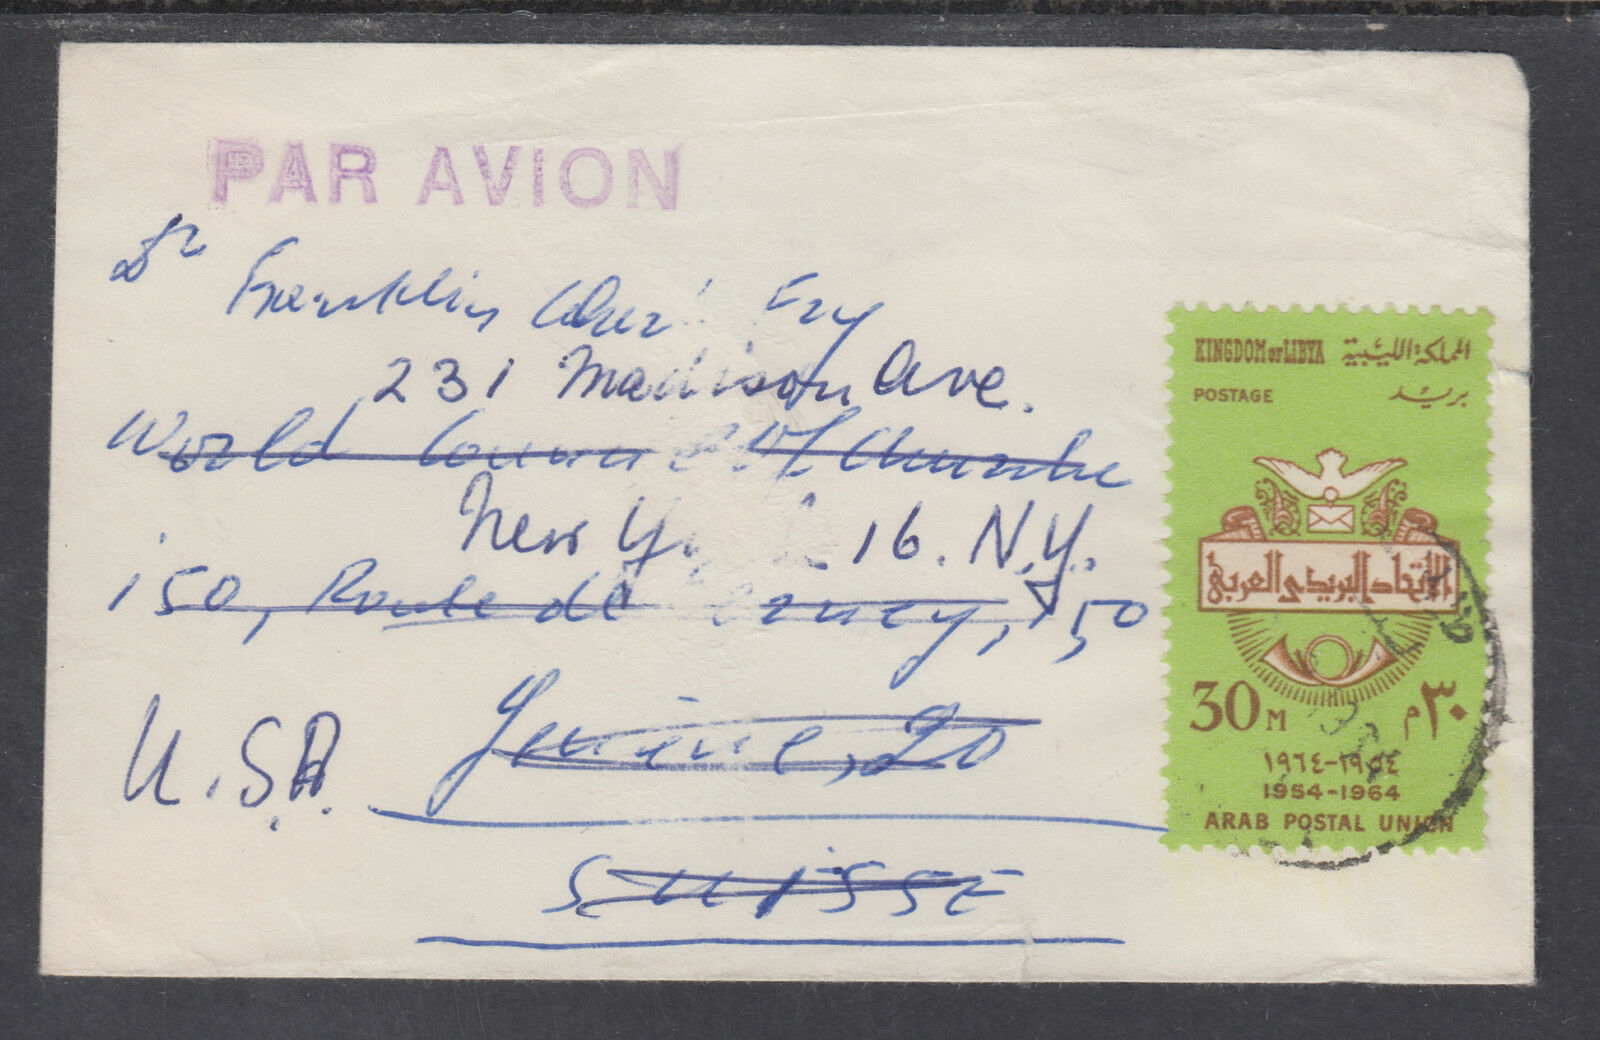 PAR AVION
Dr
Franklin Clark Fry
231 Madison Ave.
World Council of Churche
New York 16. N.Y.
150, Route de Ferney, 150
U.S.A. Genève, 20
SUISSE
KINGDOM OF LIBYA المملكة الليبية
POSTAGE بريد
الاتحاد البريدي العربي
30 M ٣٠ م
١٩٦٤-١٩٥٤
1954-1964
ARAB POSTAL UNION